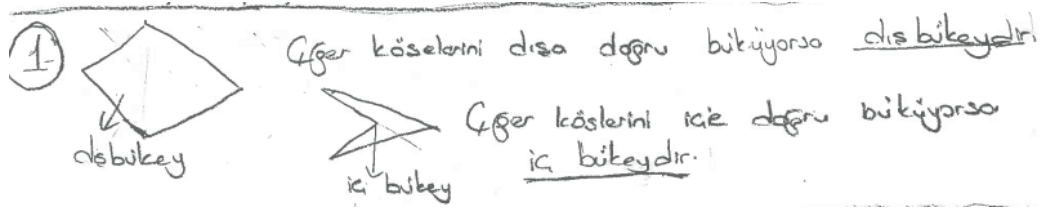 1
Eğer köşelerini dışa doğru büküyorsa dışbükeydir.
dışbükey
Eğer köşlerini içe doğru büküyorsa
iç bükeydir.
iç bükey